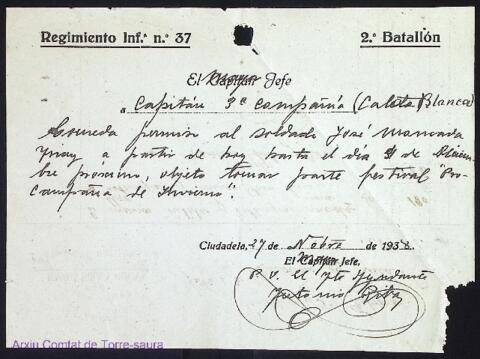 Regimiento Inf.ª n.º 37
2.º Batallón
El Capitán Mayor Jefe
a Capitán 3ª Campañia (Caleta Blanca)
Conceda permiso al soldado José Moncada
a partir de hoy hasta el día 9 de Diciem-
bre proximo, objeto tomar parte festival "Pro-
Campaña de Invierno".
Ciudadela, 27 de Nobre de 1938
El Capitán Mayor Jefe,
P. V. El Tte Ayudante
Antonio Riba
Arxiu Comtat de Torre-saura